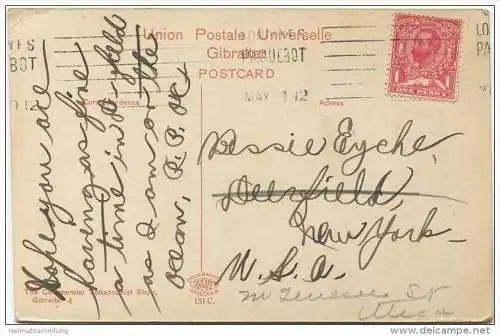 Union Postale Universelle
Gibraltar
POSTCARD
Correspondence
Adress
PAQUEBOT
MAY 12
ONE PENNY
Hope you are
having as fine
a time in
as I am on the
Ocean, R.B.
Bessie Eyche
Deerfield,
New York.
U.S.A.
Utica
The Commercial Tobacconist Shop,
Gibraltar
151 C.
Heimatsammlung
www.delcampe.net